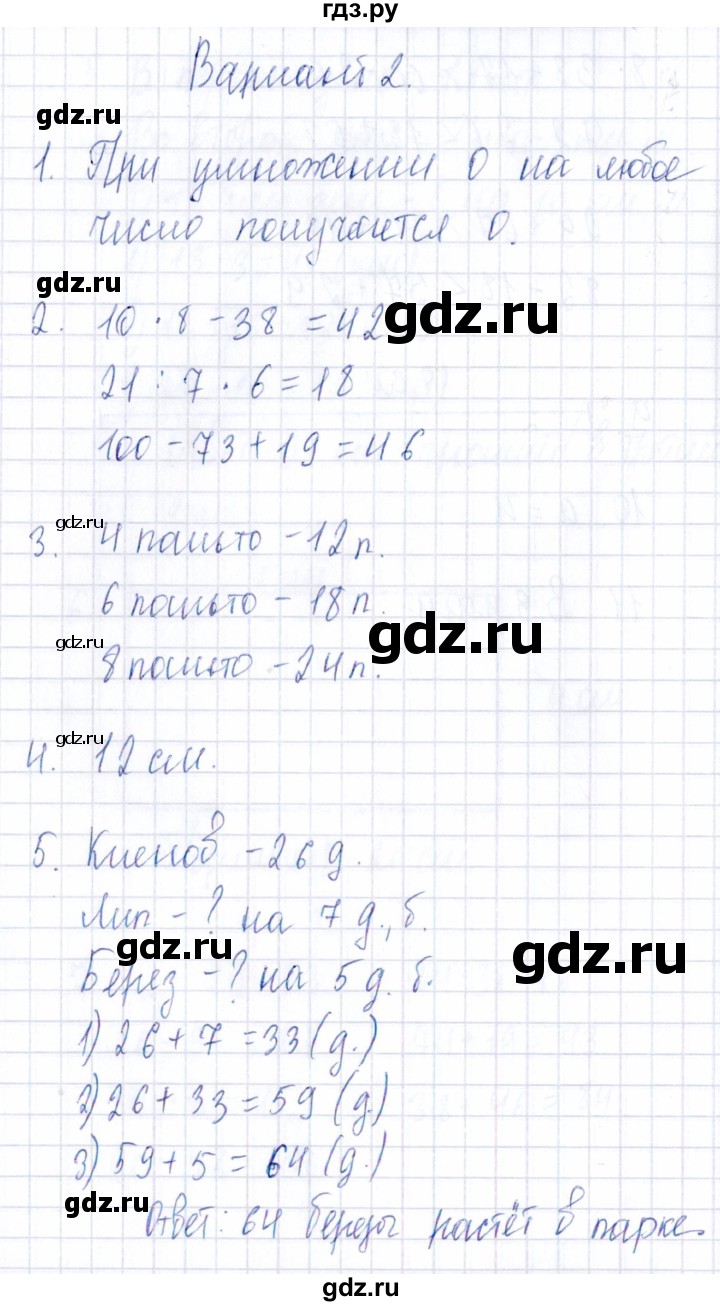 гдз.ру
Вариант 2.
gdz.ru
1. При умножении 0 на любое
число получается 0.
gdz.ru
2. 10 · 8 - 38 = 42
gdz.ru
21 : 7 · 6 = 18
100 - 73 + 19 = 46
gdz.ru
3. 4 пальто - 12 п.
6 пальто - 18 п.
gdz.ru
gdz.ru
8 пальто - 24 п.
gdz.ru
4. 12 см.
5. Кленов - 26 д.
Лип - ? на 7 д., б.
gdz.ru
gdz.ru
Берез - ? на 5 д. б.
1) 26 + 7 = 33 (д.)
2) 26 + 33 = 59 (д)
3) 59 + 5 = 64 (д.)
gdz.ru
Ответ: 64 березы растёт в парке.
gdz.ru